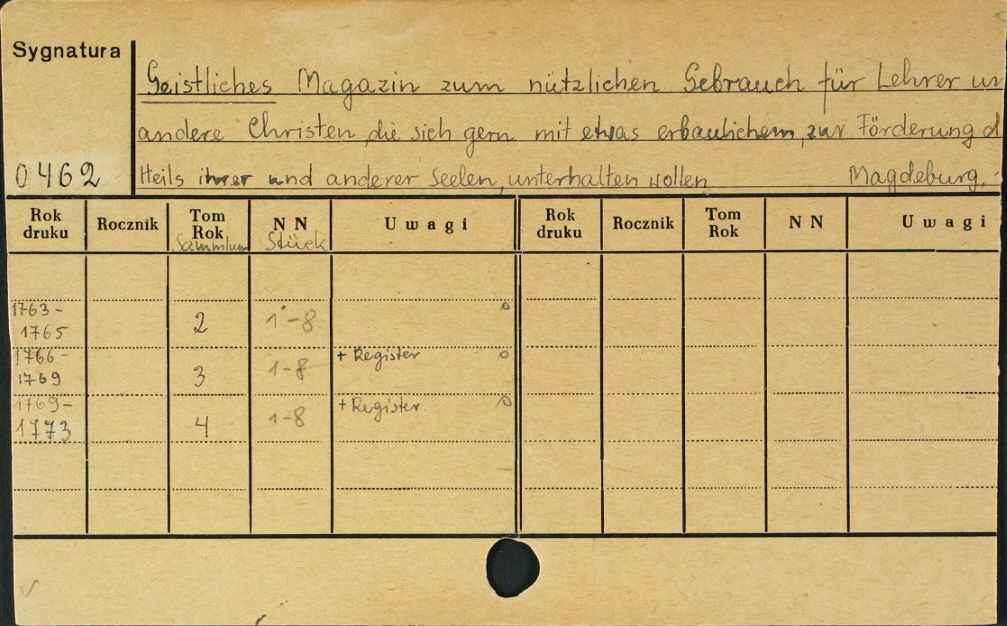 Sygnatura
Geistliches Magazin zum nützlichen Gebrauch für Lehrer un
andere Christen, die sich gern mit etwas erbaulichem, zur Förderung d
0462 Heils ihrer und anderer Seelen, unterhalten wollen Magdeburg,
Rok druku Rocznik Tom Rok Sammlun N N Stück Uwagi Rok druku Rocznik Tom Rok N N Uwagi
1763-
1765 2 1-8
1766- + Register
1769 3 1-8
1769- + Register
1773 4 1-8